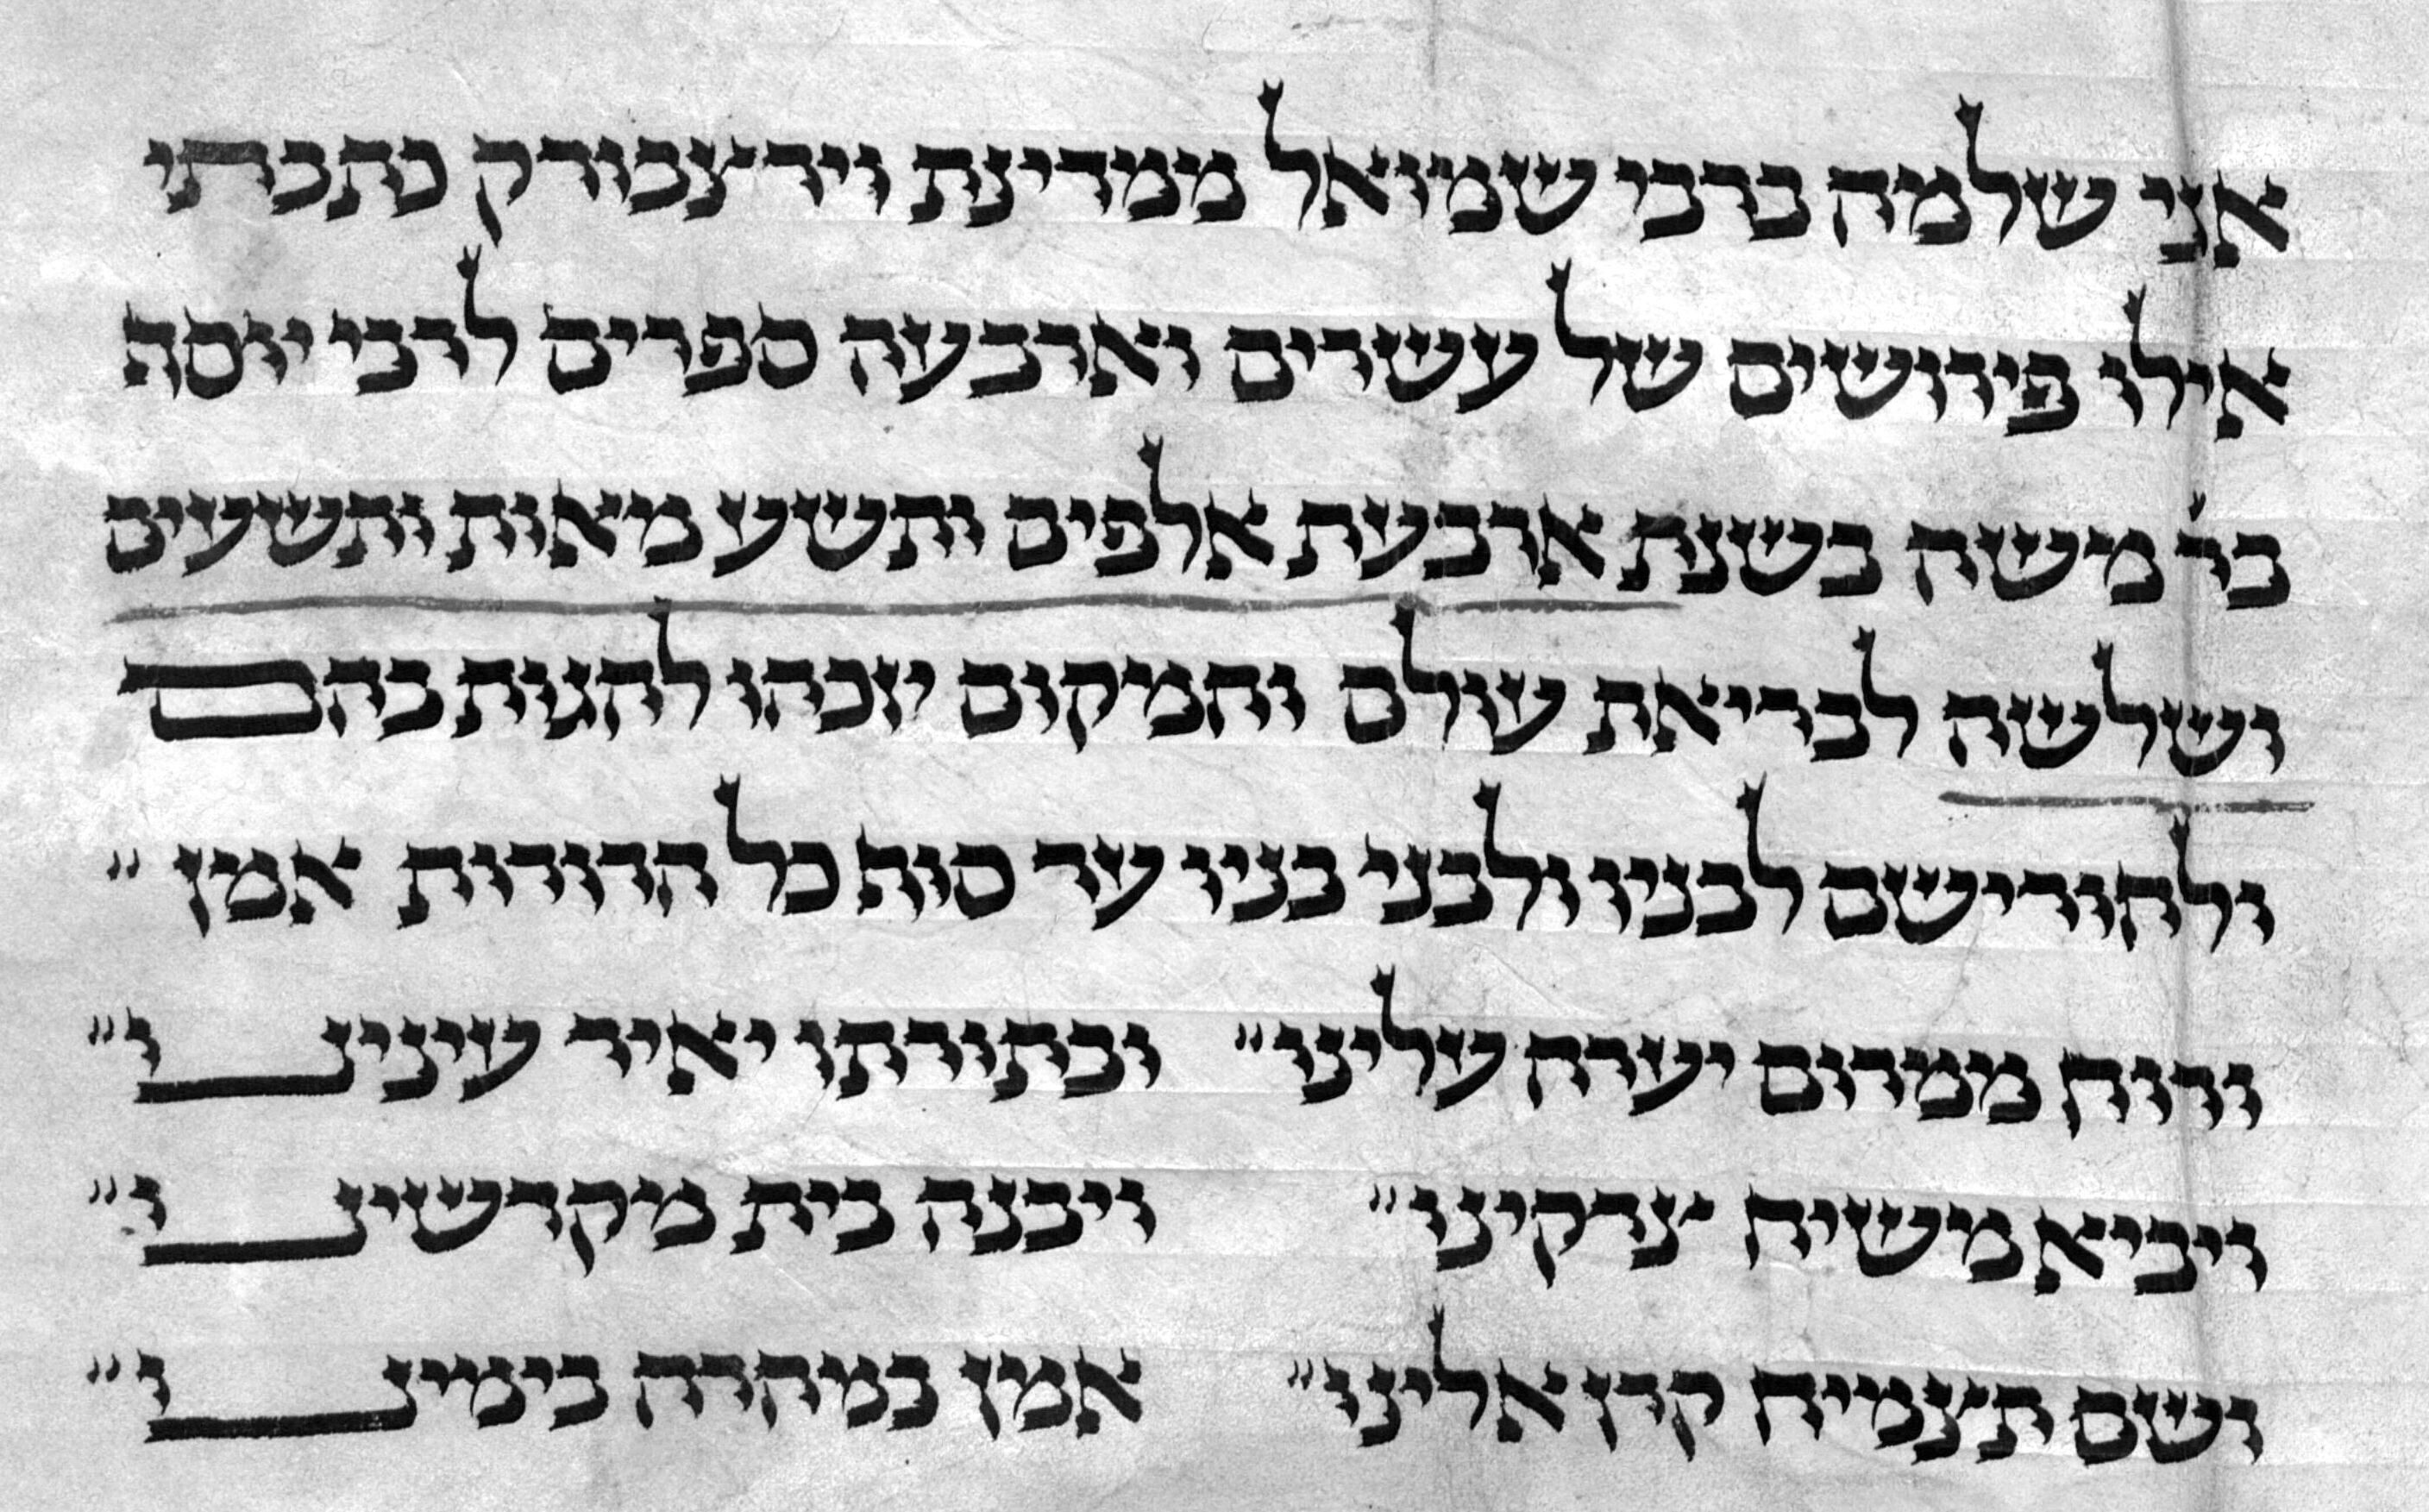 אני שלמה ברבי שמואל ממדינת וירצבורק כתבתי
אילו פירושים של עשרים וארבעה ספרים לרבי יוסה
בר׳ משה בשנת ארבעת אלפים ותשע מאות ותשעים
ושלשה לבריאת עולם והמקום יזכהו להגות בהם
ולהורישם לבניו ולבני בניו עד סוף כל הדורות אמן״
ורוח ממרום יערה עלינו״ ובתורתו יאיר עינינו״
ויביא משיח צדקינו״ ויבנה בית מקדשינו״
ושם תצמיח קרן אלינו״ אמן במהרה בימינו״